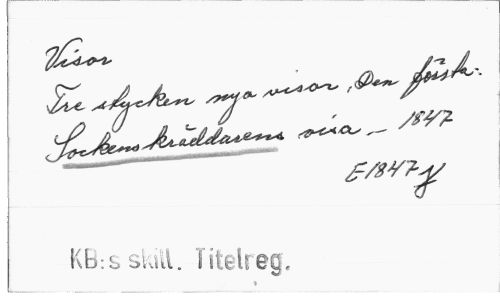 Visor
Tre stycken nya visor, Den första:
Sockenskräddarens visa – 1847
E1847
KB:s skill. Titelreg.